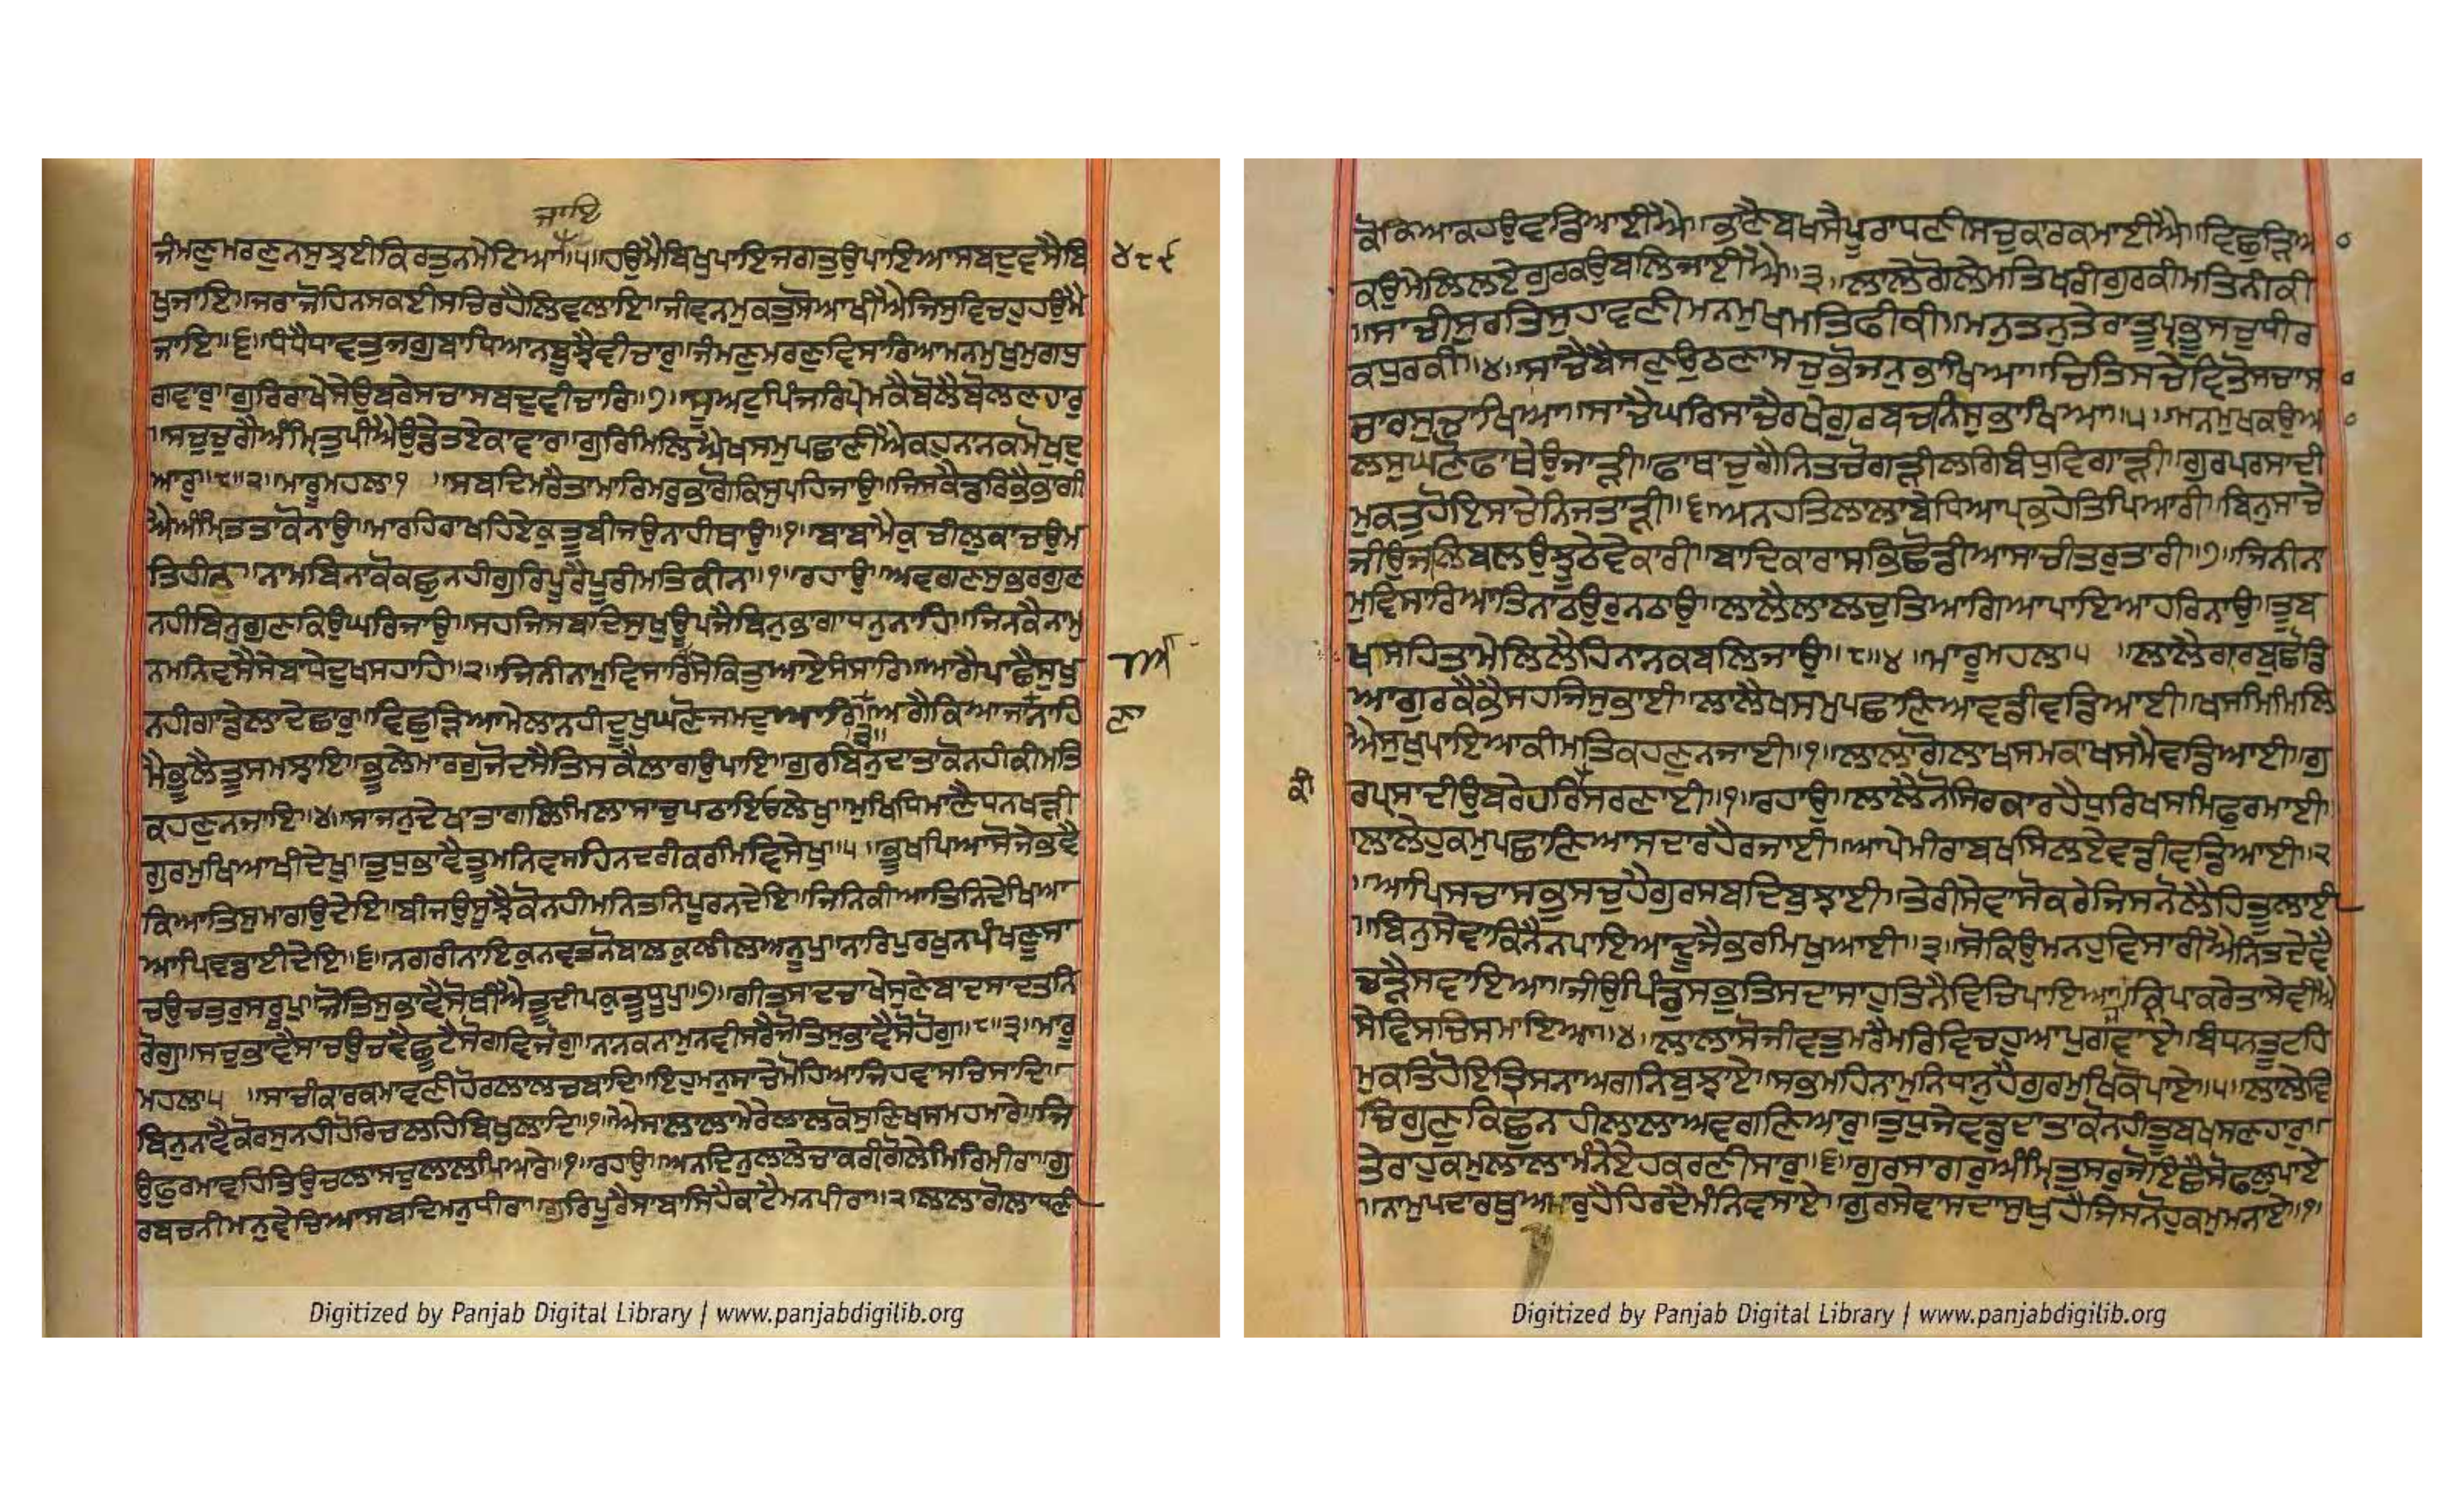 ਜਾਇ
ਜੰਮਣੁਮਰਣੁਨਸੁਝਈਕਿਰਤੁਨਮੇਟਿਆ॥੫॥ਹਉਮੈਬਿਖੁਪਾਇਜਗਤੁਉਪਾਇਆਸਬਦੁਵਸੈਬਿ ੪੮੬
ਖੁਜਾਇ॥ਜਰਾਜੋਹਿਨਸਕਈਸਚਿਰਹੈਲਿਵਲਾਇ॥ਜੀਵਨਮੁਕਤੁਸੋਆਖੀਐਜਿਸੁਵਿਚਹੁਹਉਮੈ
ਜਾਇ॥੬॥ਧੰਧੈਧਾਵਤੁਜਗੁਬਾਧਿਆਨਬੂਝੈਵੀਚਾਰੁ॥ਜੰਮਣੁਮਰਣੁਵਿਸਾਰਿਆਮਨਮੁਖੁਮੁਗਧੁ
ਗਵਾਰੁ॥ਗੁਰਿਰਾਖੇਸੇਉਬਰੇਸਚਾਸਬਦੁਵੀਚਾਰਿ॥੭॥ਸੂਅਟੁਪਿੰਜਰਿਪ੍ਰੇਮਕੈਬੋਲੈਬੋਲਣਹਾਰੁ
॥ਸਚੁਚੁਗੈਅੰਮ੍ਰਿਤੁਪੀਐਉਡੈਤਏਕਾਵਾਰ॥ਗੁਰਿਮਿਲਿਐਖਸਮੁਪਛਾਣੀਐਕਹੁਨਾਨਕਮੋਖਦੁ
ਆਰੁ॥੮॥੨॥ਮਾਰੂਮਹਲਾ੧ ॥ਸਬਦਿਮਰੈਤਾਮਾਰਿਮਰੁਭਾਗੋਕਿਸੁਪਹਿਜਾਉ॥ਜਿਸਕੈਡਰਿਭੈਭਾਗੀ
ਐਅੰਮ੍ਰਿਤਤਾਕੋਨਾਉ॥ਮਾਰਹਿਰਾਖਹਿਏਕੁਤੂਬੀਜਉਨਾਹੀਥਾਉ॥੧॥ਬਾਬਾਮੈਕੁਚੀਲੁਕਾਚਉਮ
ਤਿਹੀਨ॥ਨਾਮਬਿਨਾਕੋਕਛੁਨਹੀਗੁਰਿਪੂਰੈਪੂਰੀਮਤਿਕੀਨ॥੧॥ਰਹਾਉ॥ਅਵਗਣਸੁਭਰਗੁਣ
ਨਹੀਬਿਨੁਗੁਣਕਿਉਘਰਿਜਾਉ॥ਸਹਜਿਸਬਦਿਸੁਖੁਉਪਜੈਬਿਨੁਭਾਗਾਧਨੁਨਾਹਿ॥ਜਿਨਕੈਨਾਮੁ
ਨਮਨਿਵਸੈਸੇਬਾਧੇਦੂਖਸਹਾਹਿ॥੨॥ਜਿਨੀਨਾਮੁਵਿਸਾਰਿਸੇਕਿਤੁਆਏਸੰਸਾਰਿ॥ਆਗੈਪਾਛੈਸੁਖੁ
ਨਹੀਗਾਡੇਲਾਦੇਛਾਰੁ॥ਵਿਛੁੜਿਆਮੇਲਾਨਹੀਦੂਖੁਘਣੋਜਮਦੁਆਰਿ॥੩॥ਅਗੈਕਿਆਜਾਨਾਹਿ ਣਾ
ਮੈਭੂਲੈਤੂਸਮਝਾਇ॥ਭੂਲੇਮਾਰਗੁਜੋਦਸੈਤਿਸਕੈਲਾਗਉਪਾਇ॥ਗੁਰਬਿਨੁਦਾਤਾਕੋਨਹੀਕੀਮਤਿ
ਕਹਣੁਨਜਾਇ॥੪॥ਸਾਜਨੁਦੇਖਾਤਾਗਲਿਮਿਲਾਸਾਚੁਪਠਾਇਓਲੇਖੁ॥ਮੁਖਿਧਿਮਾਣੈਧਨਖੜੀ
ਗੁਰਮੁਖਿਆਖੀਦੇਖੁ॥ਤੁਧੁਭਾਵੈਤੂਮਨਿਵਸਹਿਨਦਰੀਕਰਮਿਵਿਸੇਖੁ॥੫॥ਭੂਖਪਿਆਸੋਜੇਭਵੈ
ਕਿਆਤਿਸੁਮਾਗਉਦੇਇ॥ਬੀਜਉਸੂਝੈਕੋਨਹੀਮਨਿਤਨਿਪੂਰਨਦੇਇ॥ਜਿਨਿਕੀਆਤਿਨਿਦੇਖਿਆ
ਆਪਿਵਡਾਈਦੇਇ॥੬॥ਨਗਰੀਨਾਇਕੁਨਵਤਨੋਬਾਲਕੁਲੀਲਅਨੂਪੁ॥ਨਾਰਿਪੁਰਖੁਨਪੰਖਣੂਸਾ
ਚਉਚਤੁਰੁਸਰੂਪੁ॥ਜੋਤਿਸੁਭਾਵੈਸੋਥੀਐਤੂਦੀਪਕੁਤੂਧੂਪੁ॥੭॥ਗੀਤਸਾਦਚਾਖੇਸੁਣੇਬਾਦਸਾਦਤਨਿ
ਰੋਗੁ॥ਸਚੁਭਾਵੈਸਾਚਉਚਵੈਛੂਟੈਸੋਗਵਿਜੋਗੁ॥ਨਾਨਕਨਾਮੁਨਵੀਸਰੈਜੋਤਿਸੁਭਾਵੈਸੋਹੋਗੁ॥੮॥੩॥ਮਾਰੂ
ਮਹਲਾ੫ ॥ਸਾਚੀਕਾਰਕਮਾਵਣੀਹੋਰਲਾਲਚਬਾਦਿ॥ਇਹੁਮਨੁਸਾਚੈਮੋਹਿਆਜਿਹਵਾਸਚਿਸਾਦਿ॥
ਬਿਨੁਨਾਵੈਕੋਰਸੁਨਹੀਹੋਰਿਚਲਹਿਬਿਖੁਲਾਦਿ॥੧॥ਐਸਾਲਾਲਾਮੇਰੇਲਾਲਕੋਸੁਣਿਖਸਮਹਮਾਰੇ॥ਜਿ
ਉਫੁਰਮਾਵਹਿਤਿਉਚਲਾਸਚੁਲਾਲਪਿਆਰੇ॥੧॥ਰਹਾਉ॥ਅਨਦਿਨੁਲਾਲੇਚਾਕਰੀਗੋਲੇਸਿਰਿਮੀਰਾ॥ਗੁ
ਰਬਚਨੀਮਨੁਵੇਚਿਆਸਬਦਿਮਨੁਧੀਰਾ॥ਗੁਰਿਪੂਰੈਸਾਬਾਸਿਹੈਕਾਟੈਮਨਪੀਰਾ॥੨॥ਲਾਲਾਗੋਲਾਧਣੀ
ਕੋਕਿਆਕਹਉਵਡਿਆਈਐ॥ਭਾਣੈਬਖਸੈਪੂਰਾਧਣੀਸਚੁਕਾਰਕਮਾਈਐ॥ਵਿਛੁੜਿਆ
ਕਉਮੇਲਿਲਏਗੁਰਕਉਬਲਿਜਾਈਐ॥੩॥ਲਾਲੇਗੋਲੇਮਤਿਖਰੀਗੁਰਕੀਮਤਿਨੀਕੀ
॥ਸਾਚੀਸੁਰਤਿਸੁਹਾਵਣੀਮਨਮੁਖਮਤਿਫੀਕੀ॥ਮਨੁਤਨੁਤੇਰਾਤੂਪ੍ਰਭੂਸਚੁਧੀਰ
ਕਧੁਰਕੀ॥੪॥ਸਾਚੈਬੈਸਣੁਉਠਣਾਸਚੁਭੋਜਨੁਭਾਖਿਆ॥ਚਿਤਿਸਚੈਵਿਤੋਸਚਾਸਾ
ਚਾਰਸੁਚਾਖਿਆ॥ਸਾਚੈਘਰਿਸਾਚੈਰਖੇਗੁਰਬਚਨਿਸੁਭਾਖਿਆ॥੫॥ਮਨਮੁਖਕਉਆ
ਲਸੁਘਣੋਫਾਥੇਓਜਾੜੀ॥ਫਾਥਾਚੁਗੈਨਿਤਚੋਗੜੀਲਗਿਬੰਧੁਵਿਗਾੜੀ॥ਗੁਰਪਰਸਾਦੀ
ਮੁਕਤੁਹੋਇਸਾਚੇਨਿਜਤਾੜੀ॥੬॥ਅਨਹਤਿਲਾਲਾਬੇਧਿਆਪ੍ਰਭਹੇਤਿਪਿਆਰੀ॥ਬਿਨੁਸਾਚੇ
ਜੀਉਜਲਿਬਲਉਝੂਠੇਵੇਕਾਰੀ॥ਬਾਦਿਕਾਰਾਸਭਿਛੋਡੀਆਸਾਚੀਤਰੁਤਾਰੀ॥੭॥ਜਿਨੀਨਾ
ਮੁਵਿਸਾਰਿਆਤਿਨਾਠਉਰਨਠਾਉ॥ਲਾਲੈਲਾਲਚੁਤਿਆਗਿਆਪਾਇਆਹਰਿਨਾਉ॥ਤੂਬ
ਖਸਹਿਤਾਮੇਲਿਲੈਹਿਨਾਨਕਬਲਿਜਾਉ॥੮॥੪॥ਮਾਰੂਮਹਲਾ੫ ॥ਲਾਲੈਗਾਰਬੁਛੋਡਿ
ਆਗੁਰਕੈਭੈਸਹਜਿਸੁਭਾਈ॥ਲਾਲੈਖਸਮੁਪਛਾਣਿਆਵਡੀਵਡਿਆਈ॥ਖਸਮਿਮਿਲਿ
ਐਸੁਖੁਪਾਇਆਕੀਮਤਿਕਹਣੁਨਜਾਈ॥੧॥ਲਾਲਾਗੋਲਾਖਸਮਕਾਖਸਮੈਵਡਿਆਈ॥ਗੁ
ਕੀ ਰਪ੍ਰਸਾਦੀਉਬਰੇਹਰਿਸਰਣਾਈ॥੧॥ਰਹਾਉ॥ਲਾਲੈਨੋਸਿਰਕਾਰਹੈਧੁਰਿਖਸਮਿਫੁਰਮਾਈ
ਲਾਲੇਹੁਕਮੁਪਛਾਣਿਆਸਦਾਰਹੈਰਜਾਈ॥ਆਪੇਮੀਰਾਬਖਸਿਲਏਵਡੀਵਡਿਆਈ॥੨
॥ਆਪਿਸਚਾਸਭੁਸਚੁਹੈਗੁਰਸਬਦਿਬੁਝਾਈ॥ਤੇਰੀਸੇਵਾਸੋਕਰੇਜਿਸਨੋਲੈਹਿਤੂਲਾਈ
॥ਬਿਨੁਸੇਵਾਕਿਨੈਨਪਾਇਆਦੂਜੈਭਰਮਿਖੁਆਈ॥੩॥ਸੋਕਿਉਮਨਹੁਵਿਸਾਰੀਐਨਿਤਦੇਵੈ
ਚੜੈਸਵਾਇਆ॥ਜੀਉਪਿੰਡੁਸਭੁਤਿਸਦਾਸਾਹੁਤਿਨੈਵਿਚਿਪਾਇਆ॥ਕ੍ਰਿਪਾਕਰੇਤਾਸੇਵੀਐ
ਸੇਵਿਸਚਿਸਮਾਇਆ॥੪॥ਲਾਲਾਸੋਜੀਵਤੁਮਰੈਮਰਿਵਿਚਹੁਆਪੁਗਵਾਏ॥ਬੰਧਨਤੂਟਹਿ
ਮੁਕਤਿਹੋਇਤ੍ਰਿਸਨਾਅਗਨਿਬੁਝਾਏ॥ਸਭਮਹਿਨਾਮੁਨਿਧਾਨੁਹੈਗੁਰਮੁਖਿਕੋਪਾਏ॥੫॥ਲਾਲੇਵਿ
ਚਿਗੁਣੁਕਿਛੁਨਹੀਲਾਲਾਅਵਗਣਿਆਰੁ॥ਤੁਧੁਜੇਵਡੁਦਾਤਾਕੋਨਹੀਤੂਬਖਸਣਹਾਰੁ॥
ਤੇਰਾਹੁਕਮੁਲਾਲਾਮੰਨੇਏਹਕਰਣੀਸਾਰੁ॥੬॥ਗੁਰਸਾਗਰੁਅੰਮ੍ਰਿਤਸਰੁਜੋਇਛੈਸੋਫਲੁਪਾਏ
॥ਨਾਮੁਪਦਾਰਥੁਅਮਰੁਹੈਹਿਰਦੈਮੰਨਿਵਸਾਏ॥ਗੁਰਸੇਵਾਸਦਾਸੁਖੁਹੈਜਿਸਨੋਹੁਕਮੁਮਨਾਏ॥੭
Digitized by Panjab Digital Library | www.panjabdigilib.org
Digitized by Panjab Digital Library | www.panjabdigilib.org